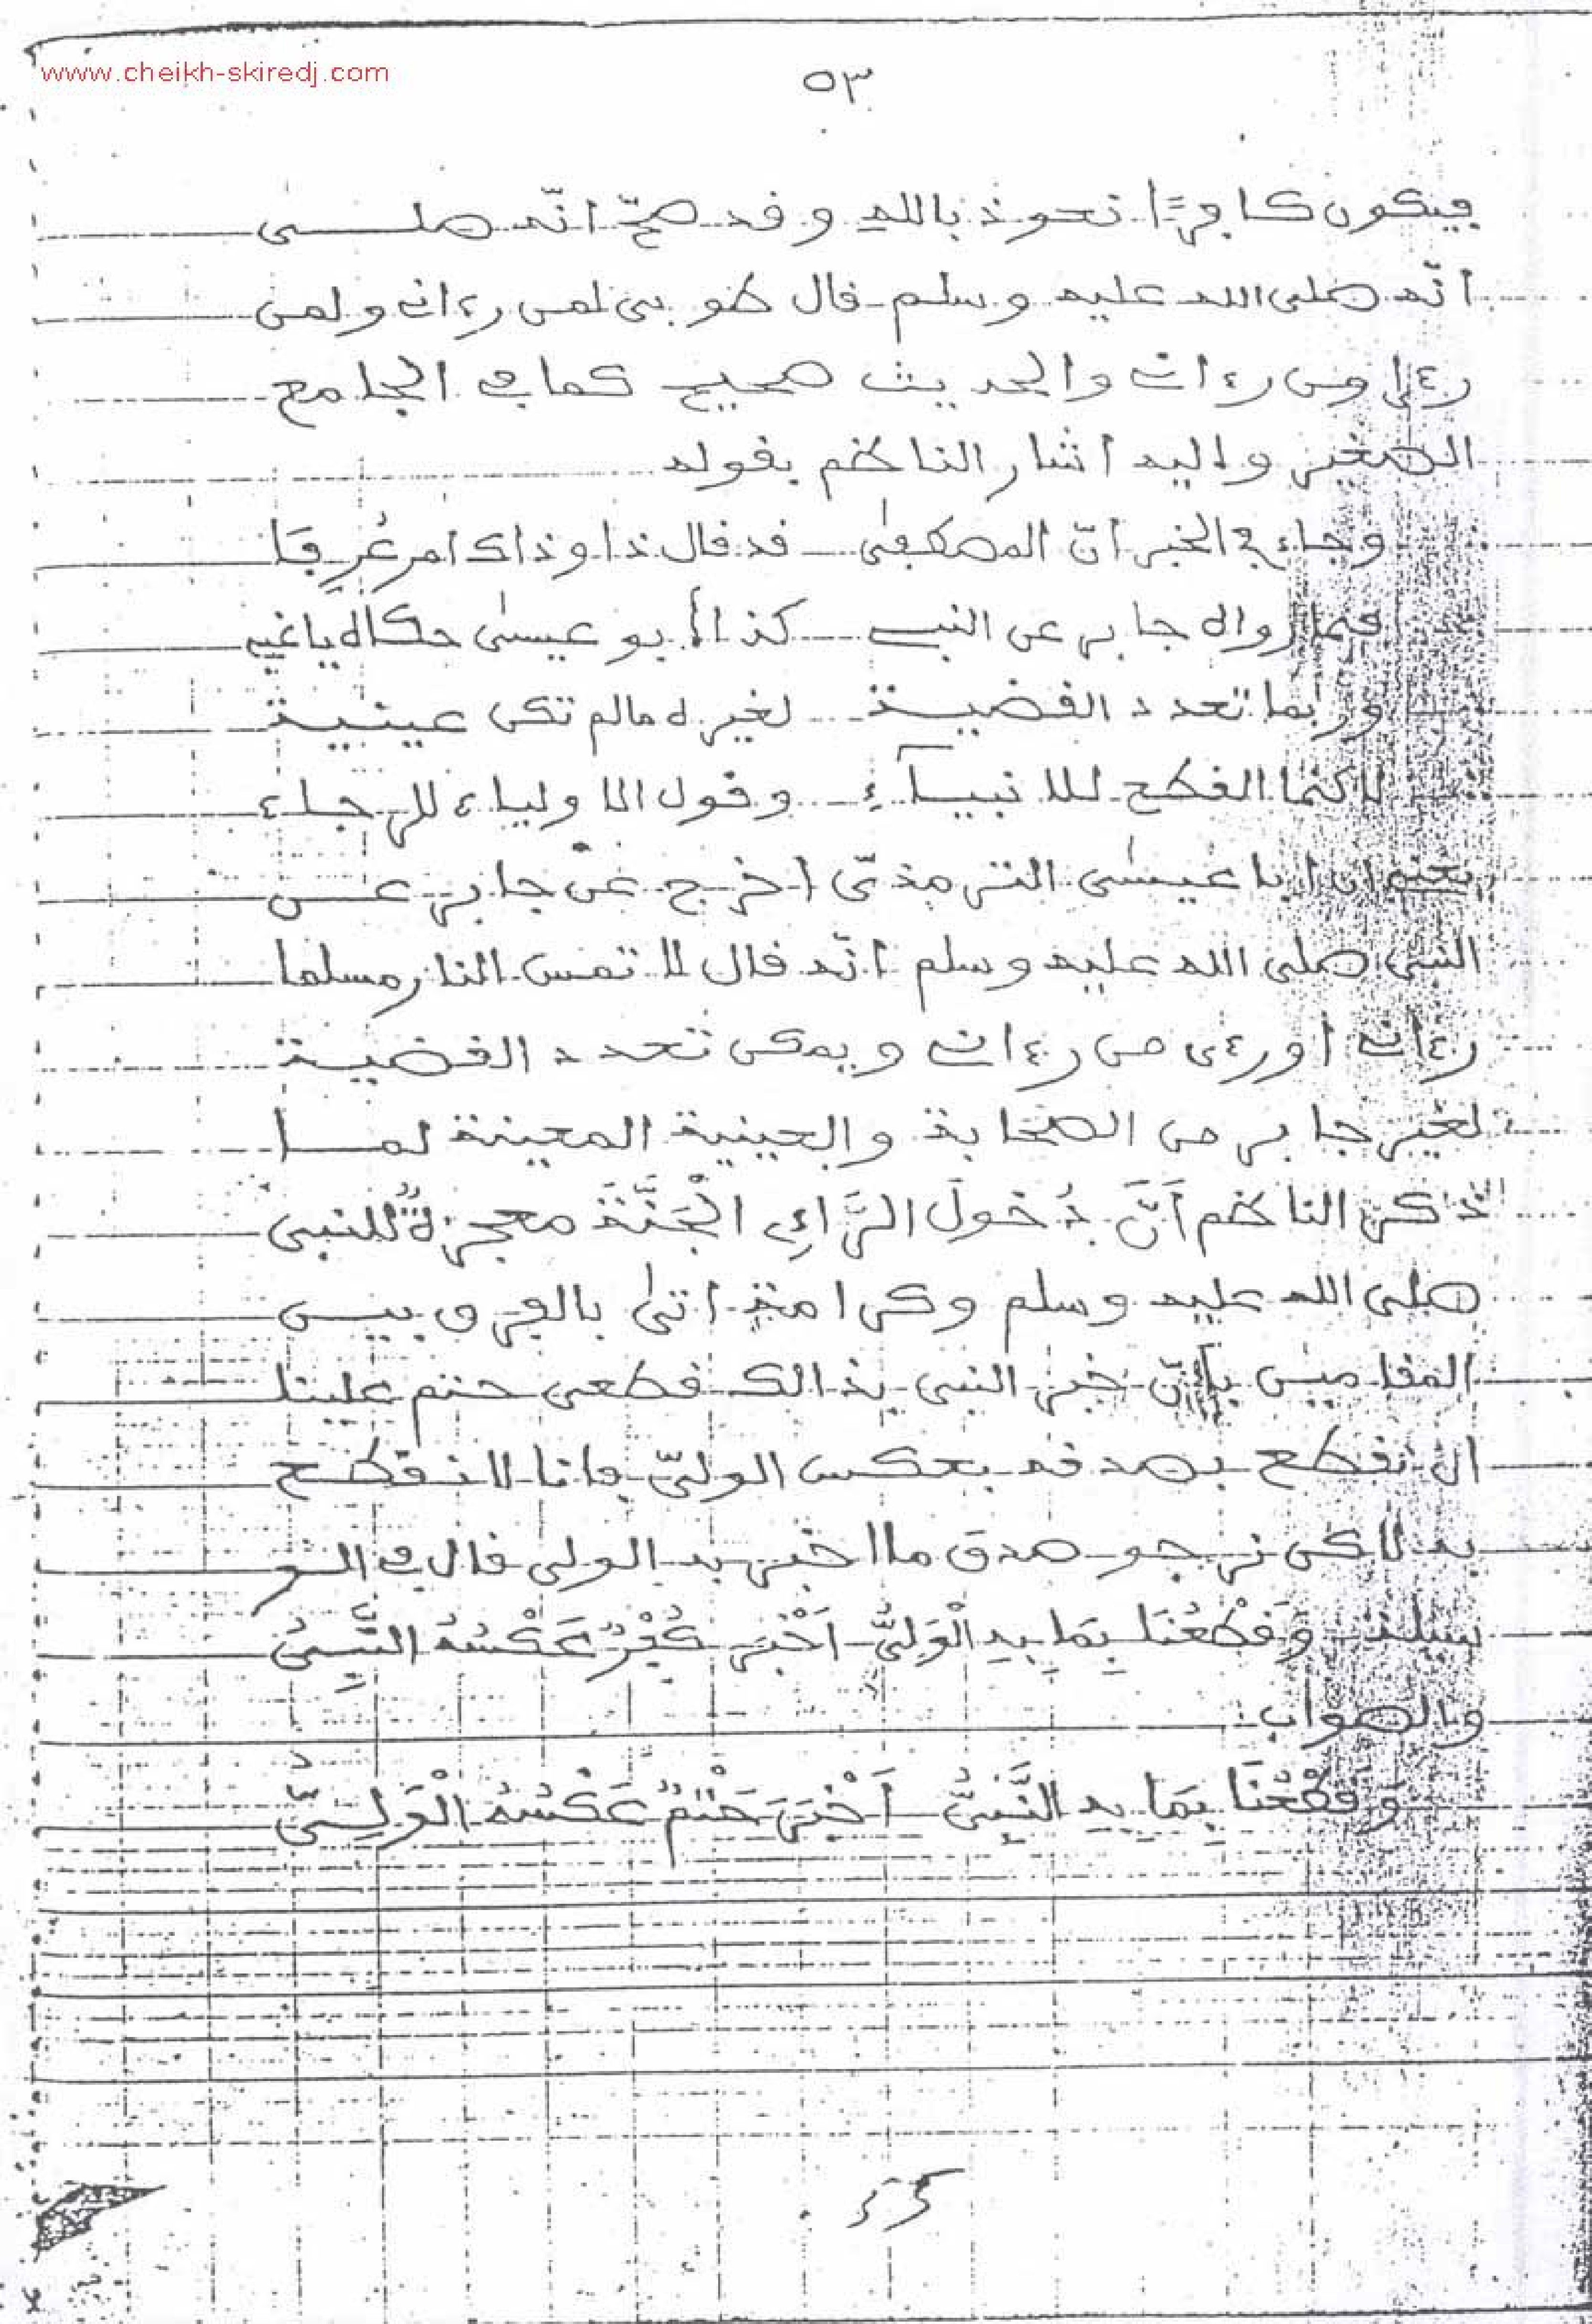 www.cheikh-skiredj.com
٥٣
فيكون كافرًا نعوذ بالله وقد صحّ انّه صلى
انّه صلى الله عليه وسلم قال طوبى لمن رءانى ولمن
رءى من رءانى والحديث صحيح كما في الجامع
الصغير واليه اشار الناظم بقوله
وجاء في الخبر انّ المصطفى قد قال ذا وذاك امر عُرِفا
فما رواه جابر عن النبي كذا أبو عيسى حكاه ياغبي
وربما تعدد القضية لغيره مالم تكن عينية
لاكنما القطع للانبيآءِ وقول الاولياء للرجاء
يعنى ان ابا عيسى الترمذىّ اخرج عن جابر عن
النبى صلى الله عليه وسلم انّه قال لا تمس النار مسلما
رءانى او رءى من رءانى ويمكن تعدد القضية
لغير جابر من الصحابة والعينية المعينة لما
ذكر الناظم أنَّ دُخولَ الرَّاءِى الْجَنَّةَ معجزةٌ للنبى
صلى الله عليه وسلم وكرامة اتى بالفرق بين
المقامين بأنّ خبر النبى بذالك قطعى حتم علينا
ان نقطع بصدقه بعكس الولىّ فانا لا نقطع
به لاكن نرجو صدق ما اخبر به الولى قال في النو
وَقَطْعُنَا بِمَا بِهِ الْوَلِىُّ اَخْبَرَ كُفْرٌ عَكْسُهُ النَّبِىُّ
والصواب
وقَطْعُنَا بِمَا بِهِ النَّبِىُّ اَخْبَرَ حَتْمٌ عَكْسُهُ الْوَلِىُّ